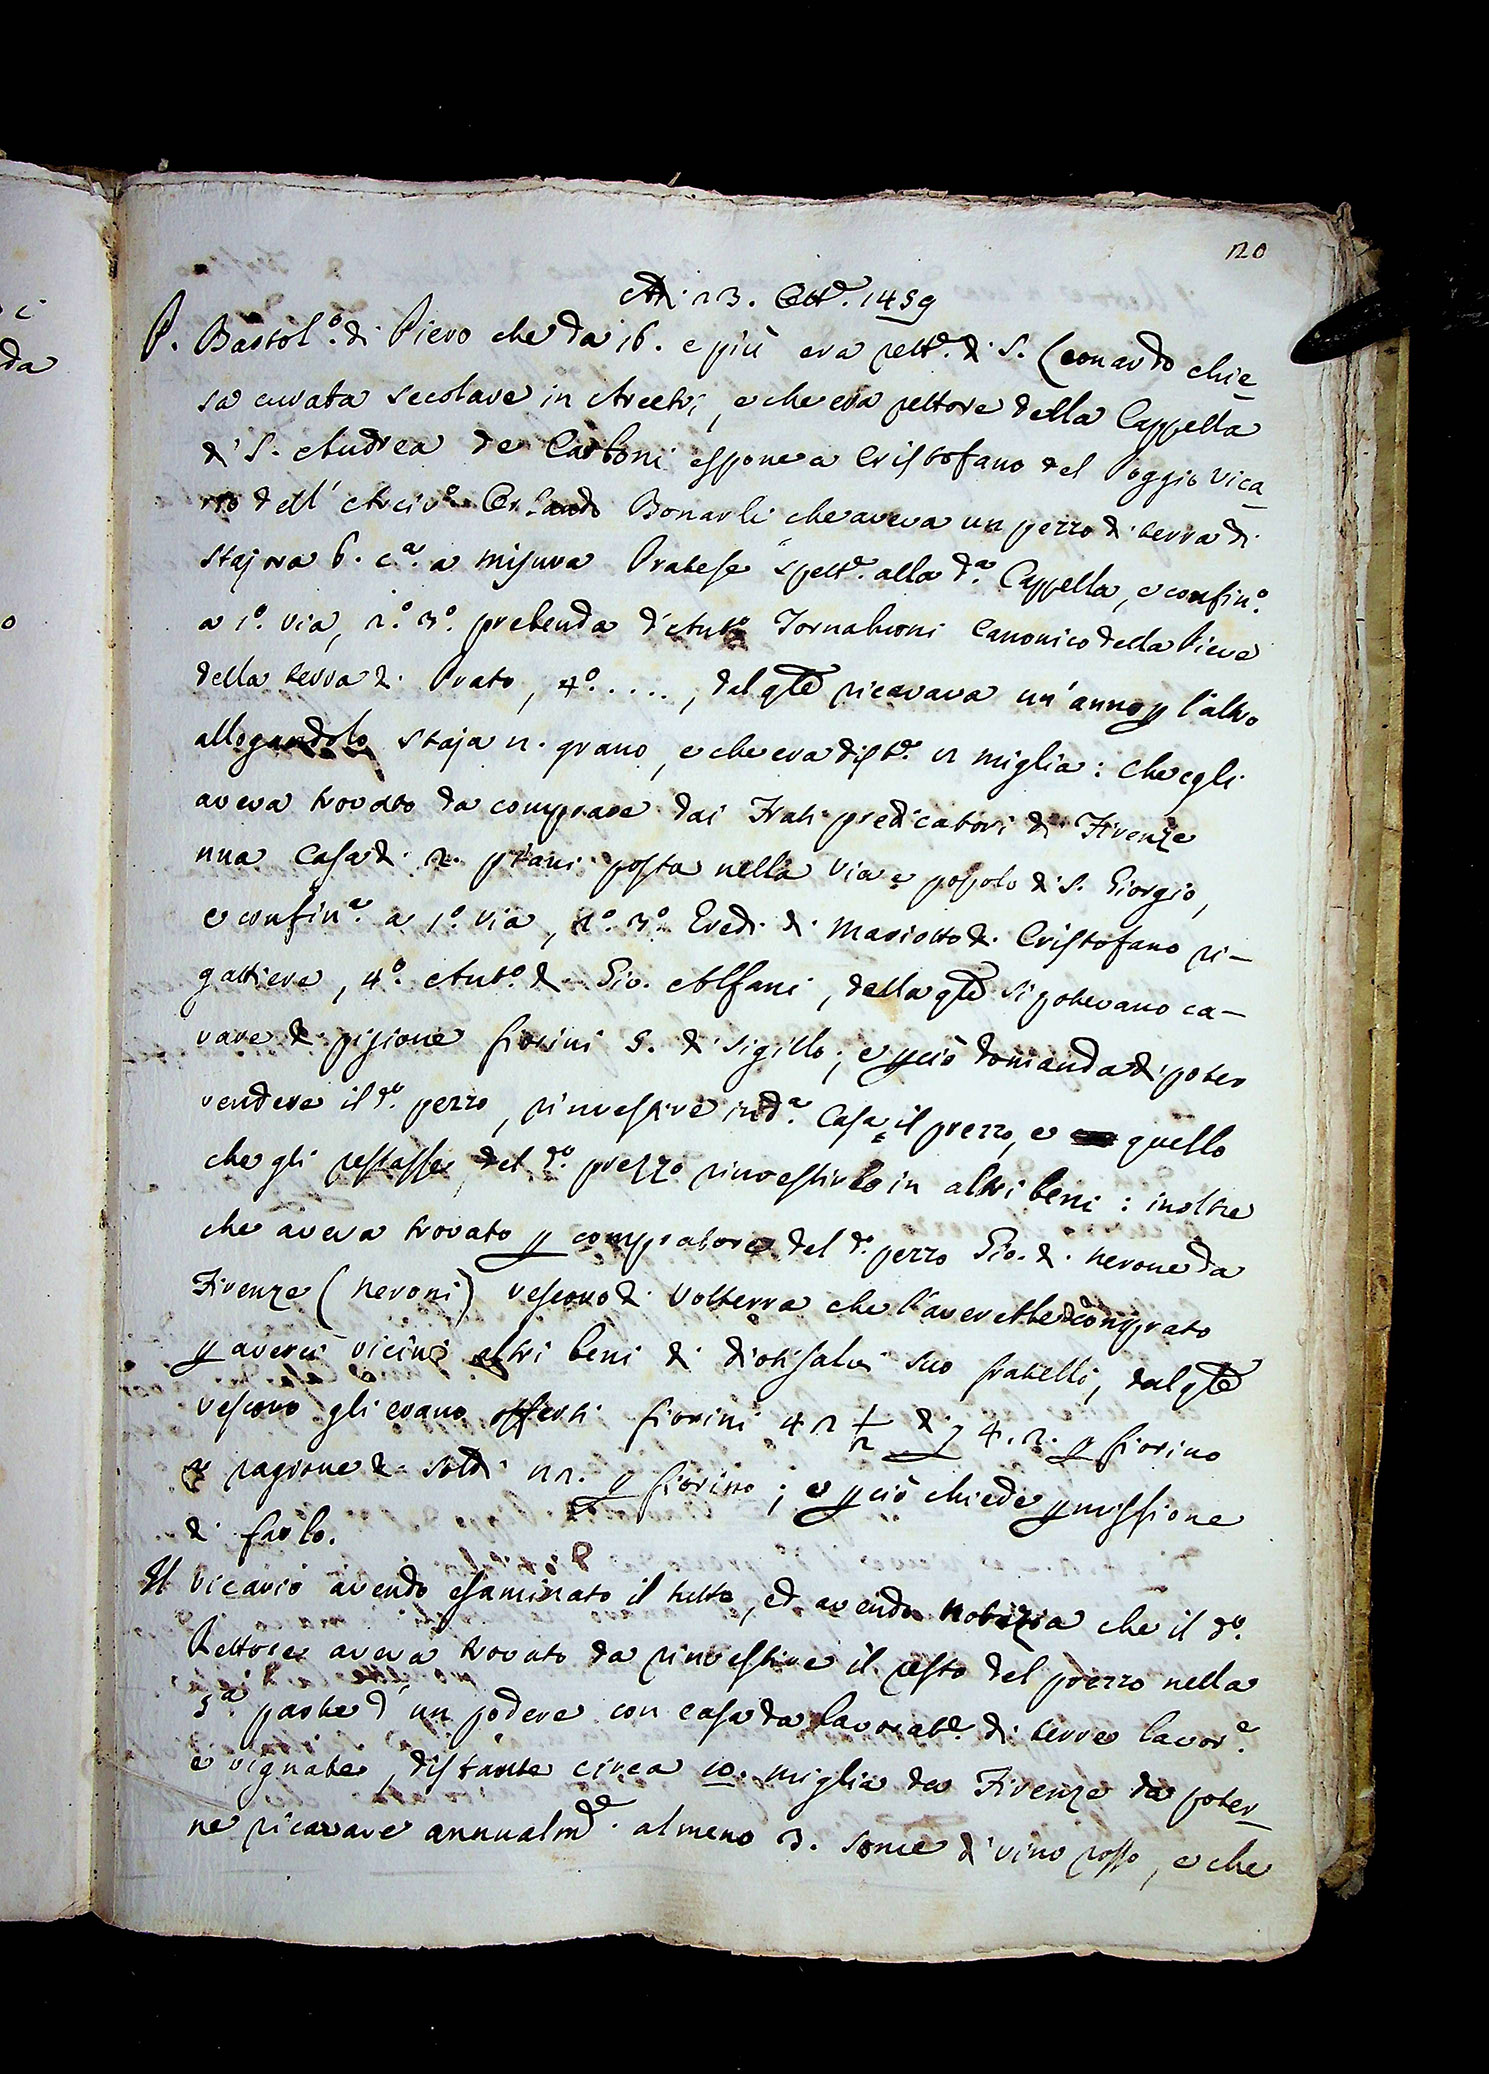 120
Adi 23. Ott.e 1459
P. Bartol.o di Piero che da 16. e più era rett.e di S. Leonardo chie
sa curata secolare in Arcetri, e che era rettore della Cappella
di S. Andrea de Carboni espone a Cristofano del Poggio Vica
rio dell'Arciv.o Orlando Bonarli che aveva un pezzo di terra di
staiora 6. c.a a misura Pratese spett.e alla d.a Cappella, e confin.o
a 1.o via, 2.o 3.o prebenda d'Ant.o Tornabuoni Canonico della Pieve
della terra di Prato, 4.o ....., dal qle ricavava un'anno p l'altro
allogandolo staja 12. grano, e che era dist.e 12 miglia: che egli
aveva trovato da comprare dai Frati predicatori di Firenze
una Casa di 2. piani posta nella Via e popolo di S. Giorgio,
e confin.a a 1.o via, 2.o 3.o Eredi di Mariotto di Cristofano ri-
gattiere, 4.o Ant.o di Gio. Alfani, della qle si potevano ca-
vare di pigione fiorini 5. di sigillo; e pciò domanda di poter
vendere il d.o pezzo, rinvestire in d.a Casa il prezzo, e quello
che gli restasse del d.o prezzo rinvestirlo in altri beni: inoltre
che aveva trovato p compratore del d.o pezzo Gio. di Nerone da
Firenze (Neroni) vescovo di Volterra che l'averebbe comprato
p averci vicino altri beni di Diotisalvi suo fratello, dal qle
vescovo gli erano offerti fiorini 42 1/2 di £ 4. 2. p fiorino
a ragione di soldi 22. p fiorino; e pciò chiede pmissione
di farlo.
Il Vicario avendo esaminato il tutto, ed avendo notizia che il d.o
Rettore aveva trovato da rinvestire il resto del prezzo nella
5.a parte d'un podere con casa da lavorat.e di terre lavor.e
e vignate, distante circa 10. miglia da Firenze da poter
ne ricavare annualm.e almeno 3. some di vino rosso, e che